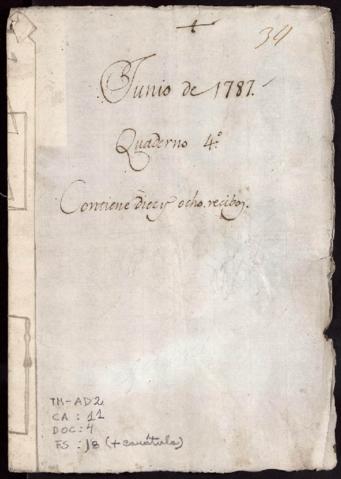 34
Junio de 1787.
Quaderno 4.º
Contiene diez y ocho recibos.
TM-AD2
CA : 11
DOC: 4
FS : 18 (+ carátula)